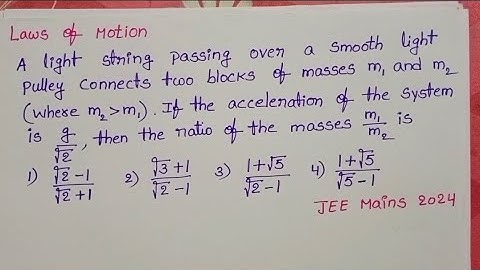 Laws of Motion
A light string passing over a smooth light
Pulley connects two blocks of masses m₁ and m₂
(where m₂>m₁). If the acceleration of the system
is g/√2, then the ratio of the masses m₁/m₂ is
1) (√2-1)/(√2+1) 2) (√3+1)/(√2-1) 3) (1+√5)/(√2-1) 4) (1+√5)/(√5-1)
JEE Mains 2024